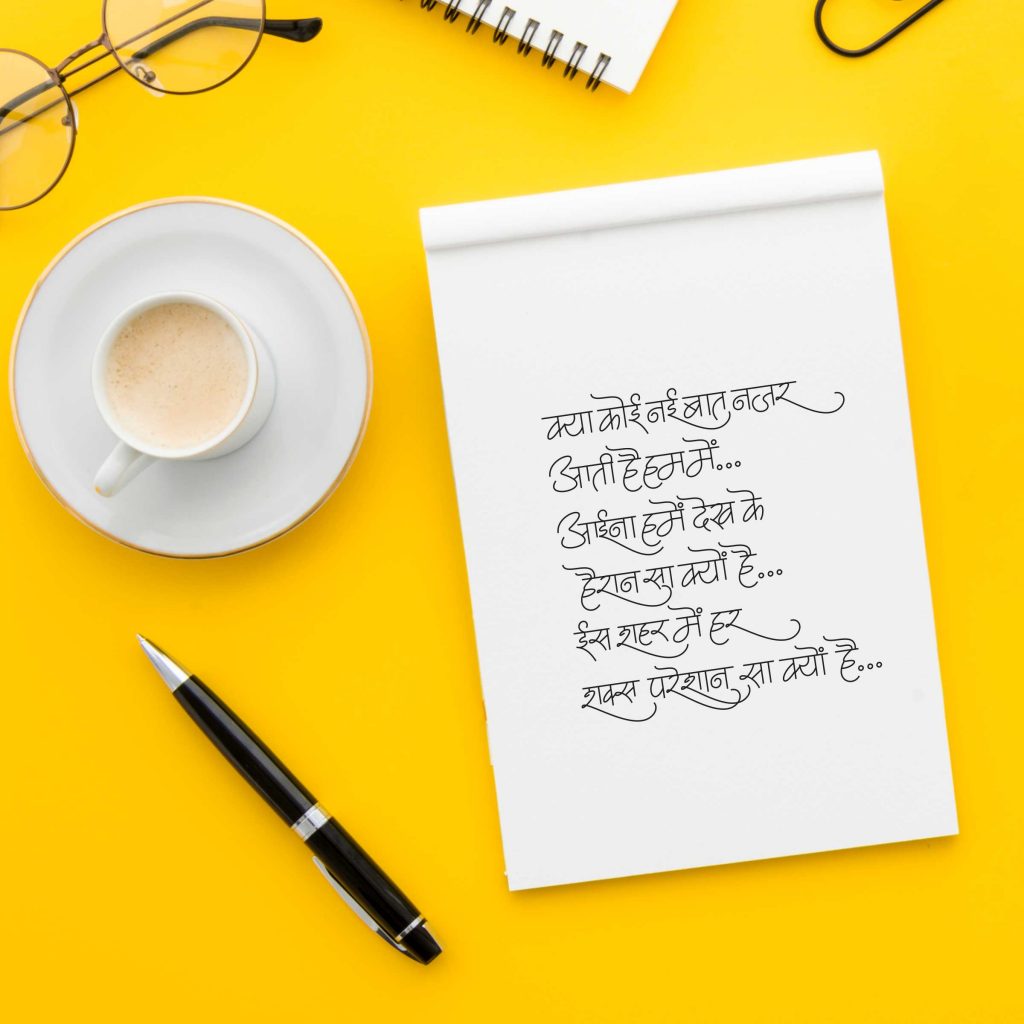 क्या कोई नई बात नजर
आती है हम में...
आईना हमें देख के
हैरान सा क्यों है...
ईस शहर में हर
शक्स परेशान सा क्यों है...